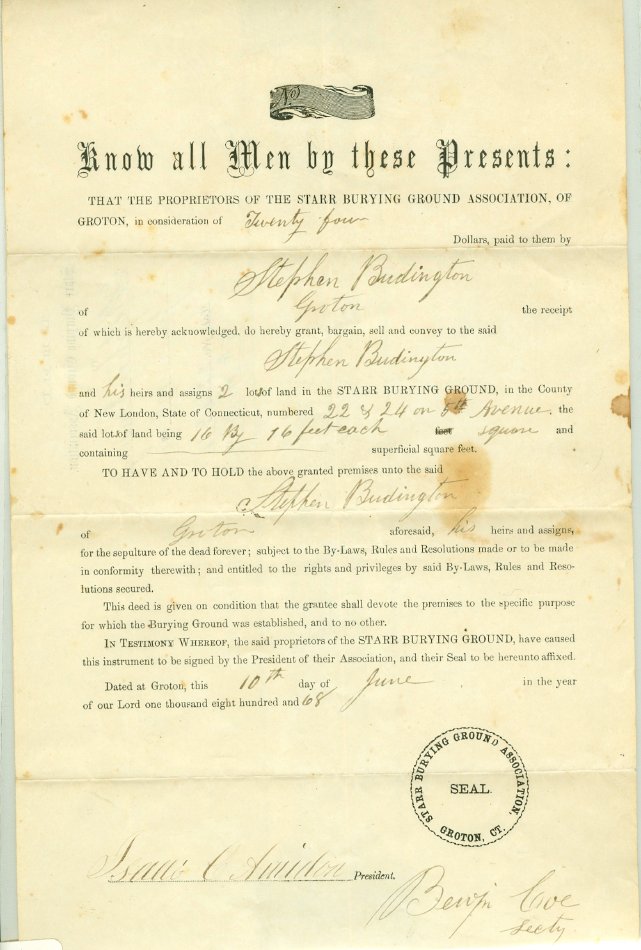 No
Know all Men by these Presents:
THAT THE PROPRIETORS OF THE STARR BURYING GROUND ASSOCIATION, OF
GROTON, in consideration of Twenty four
Dollars, paid to them by
Stephen Budington
of Groton the receipt
of which is hereby acknowledged, do hereby grant, bargain, sell and convey to the said
Stephen Budington
and his heirs and assigns 2 lots of land in the STARR BURYING GROUND, in the County
of New London, State of Connecticut, numbered 22 & 24 on 5th Avenue, the
said lots of land being 16 By 16 feet each feet square and
containing superficial square feet.
TO HAVE AND TO HOLD the above granted premises unto the said
Stephen Budington
of Groton aforesaid, his heirs and assigns,
for the sepulture of the dead forever; subject to the By-Laws, Rules and Resolutions made or to be made
in conformity therewith; and entitled to the rights and privileges by said By-Laws, Rules and Reso-
lutions secured.
This deed is given on condition that the grantee shall devote the premises to the specific purpose
for which the Burying Ground was established, and to no other.
IN TESTIMONY WHEREOF, the said proprietors of the STARR BURYING GROUND, have caused
this instrument to be signed by the President of their Association, and their Seal to be hereunto affixed.
Dated at Groton, this 10th day of June in the year
of our Lord one thousand eight hundred and 68
STARR BURYING GROUND ASSOCIATION,
SEAL.
GROTON, CT.
Isaac C Amidon President.
Benjn Coe
Secty